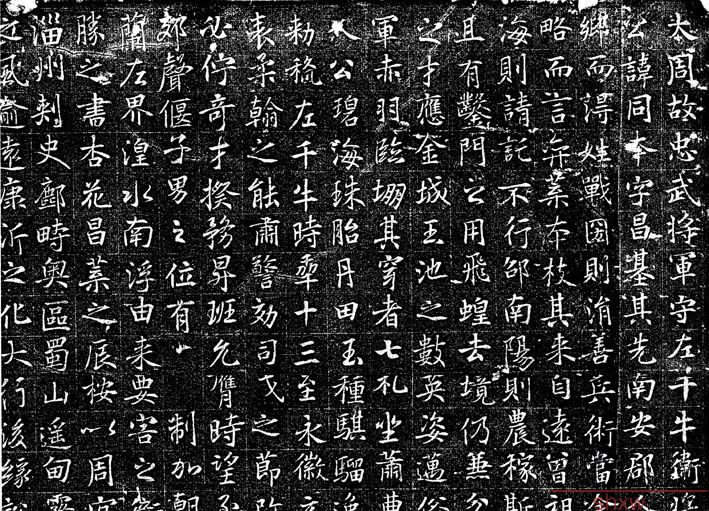 大周故忠武将軍守左千牛衛将
公諱同本字昌基其先南安郡
鄉而得姓戰國則消善兵術當
略而言弈葉本枝其来自遠曾祖
海則請託不行邵南陽則農稼斯
且有鑿門之用飛蝗去境仍兼
之才應金城玉池之數英姿邁俗
軍赤羽臨堋其穿者七札坐蕭曹
公碧海珠胎丹田玉種騏騮
勅稱左千牛時年十三至永徽
表柔翰之能肅警効司戈之節
必佇奇才揆務昇班允膺時望
郊聲偃子男之位有 制加朝
蘭左界湟水南浮由来要害之
勝之書杏花昌葉之辰桉以周
淄州刺史鄜畤奥區蜀山遥甸
之風逾遠康沂之化大行後緣